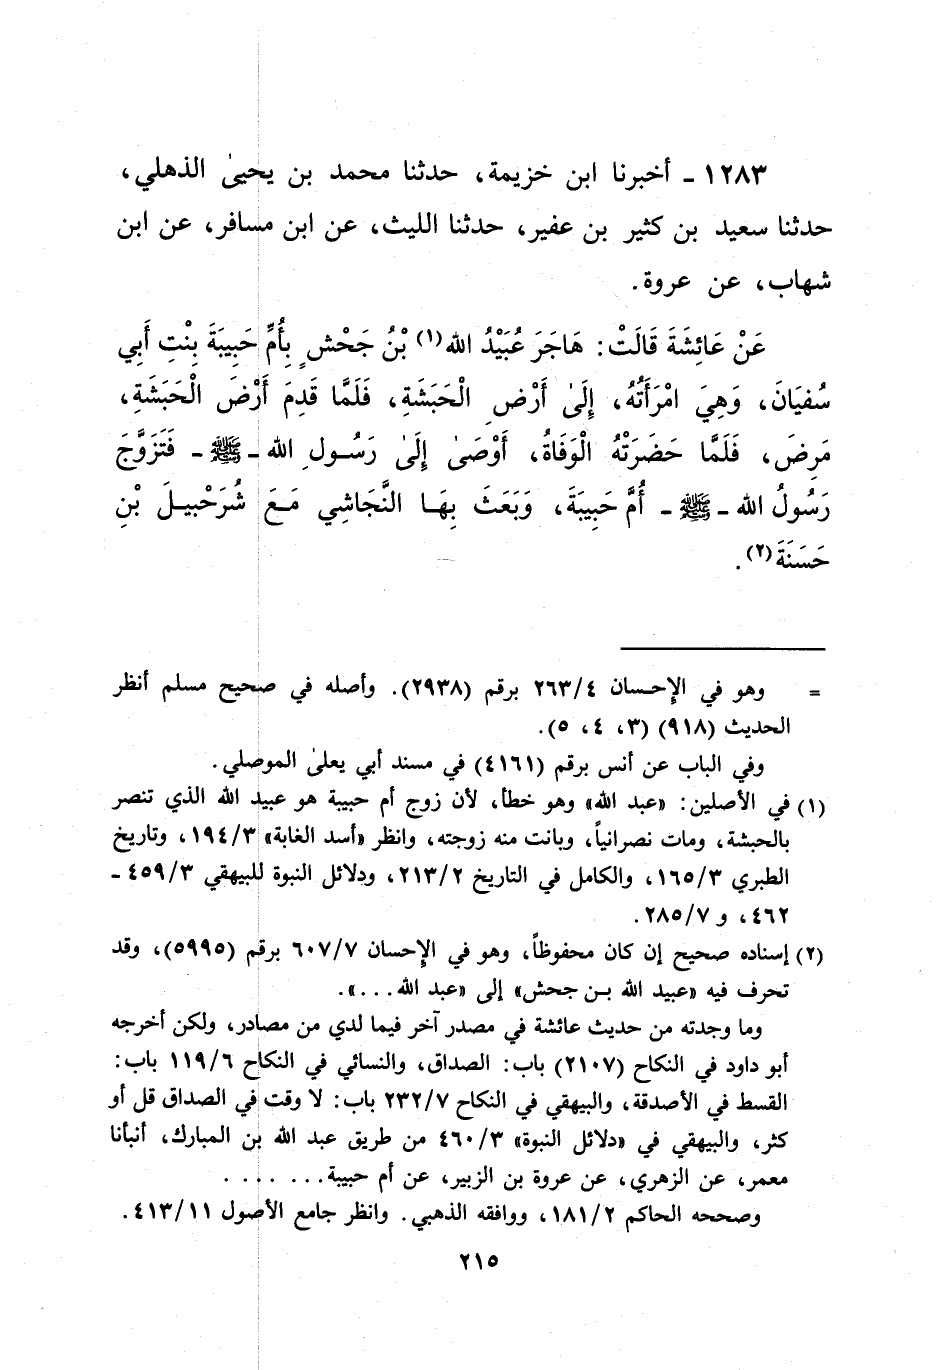 ١٢٨٣ - أخبرنا ابن خزيمة، حدثنا محمد بن يحيىٰ الذهلي،
حدثنا سعيد بن كثير بن عفير، حدثنا الليث، عن ابن مسافر، عن ابن
شهاب، عن عروة.
عَنْ عَائِشَةَ قَالَتْ: هَاجَرَ عُبَيْدُ الله(١) بْنُ جَحْشٍ بِأُمِّ حَبِيبَةَ بِنْتِ أَبِي
سُفيَانَ، وَهِيَ امْرَأَتُهُ، إِلَىٰ أَرْضِ الْحَبَشَةِ، فَلَمَّا قَدِمَ أَرْضَ الْحَبَشَةِ،
مَرِضَ، فَلَمَّا حَضَرَتْهُ الْوَفَاةُ، أَوْصَىٰ إِلَىٰ رَسُولِ الله - ﷺ - فَتَزَوَّجَ
رَسُولُ الله - ﷺ - أُمَّ حَبِيبَةَ، وَبَعَثَ بِهَا النَّجَاشِي مَعَ شُرَحْبِيلَ بْنِ
حَسَنَةَ(٢).
= وهو في الإحسان ٢٦٣/٤ برقم (٢٩٣٨). وأصله في صحيح مسلم أنظر
الحديث (٩١٨) (٣، ٤، ٥).
وفي الباب عن أنس برقم (٤١٦١) في مسند أبي يعلىٰ الموصلي.
(١) في الأصلين: «عبد الله» وهو خطأ، لأن زوج أم حبيبة هو عبيد الله الذي تنصر
بالحبشة، ومات نصرانياً، وبانت منه زوجته، وانظر «أسد الغابة» ١٩٤/٣، وتاريخ
الطبري ١٦٥/٣، والكامل في التاريخ ٢١٣/٢، ودلائل النبوة للبيهقي ٤٥٩/٣ -
٤٦٢، و ٢٨٥/٧.
(٢) إسناده صحيح إن كان محفوظاً، وهو في الإحسان ٦٠٧/٧ برقم (٥٩٩٥)، وقد
تحرف فيه «عبيد الله بن جحش» إلى «عبد الله...».
وما وجدته من حديث عائشة في مصدر آخر فيما لدي من مصادر، ولكن أخرجه
أبو داود في النكاح (٢١٠٧) باب: الصداق، والنسائي في النكاح ١١٩/٦ باب:
القسط في الأصدقة، والبيهقي في النكاح ٢٣٢/٧ باب: لا وقت في الصداق قل أو
كثر، والبيهقي في «دلائل النبوة» ٤٦٠/٣ من طريق عبد الله بن المبارك، أنبأنا
معمر، عن الزهري، عن عروة بن الزبير، عن أم حبيبة... ... . .
وصححه الحاكم ١٨١/٢، ووافقه الذهبي. وانظر جامع الأصول ٤١٣/١١.
٢١٥